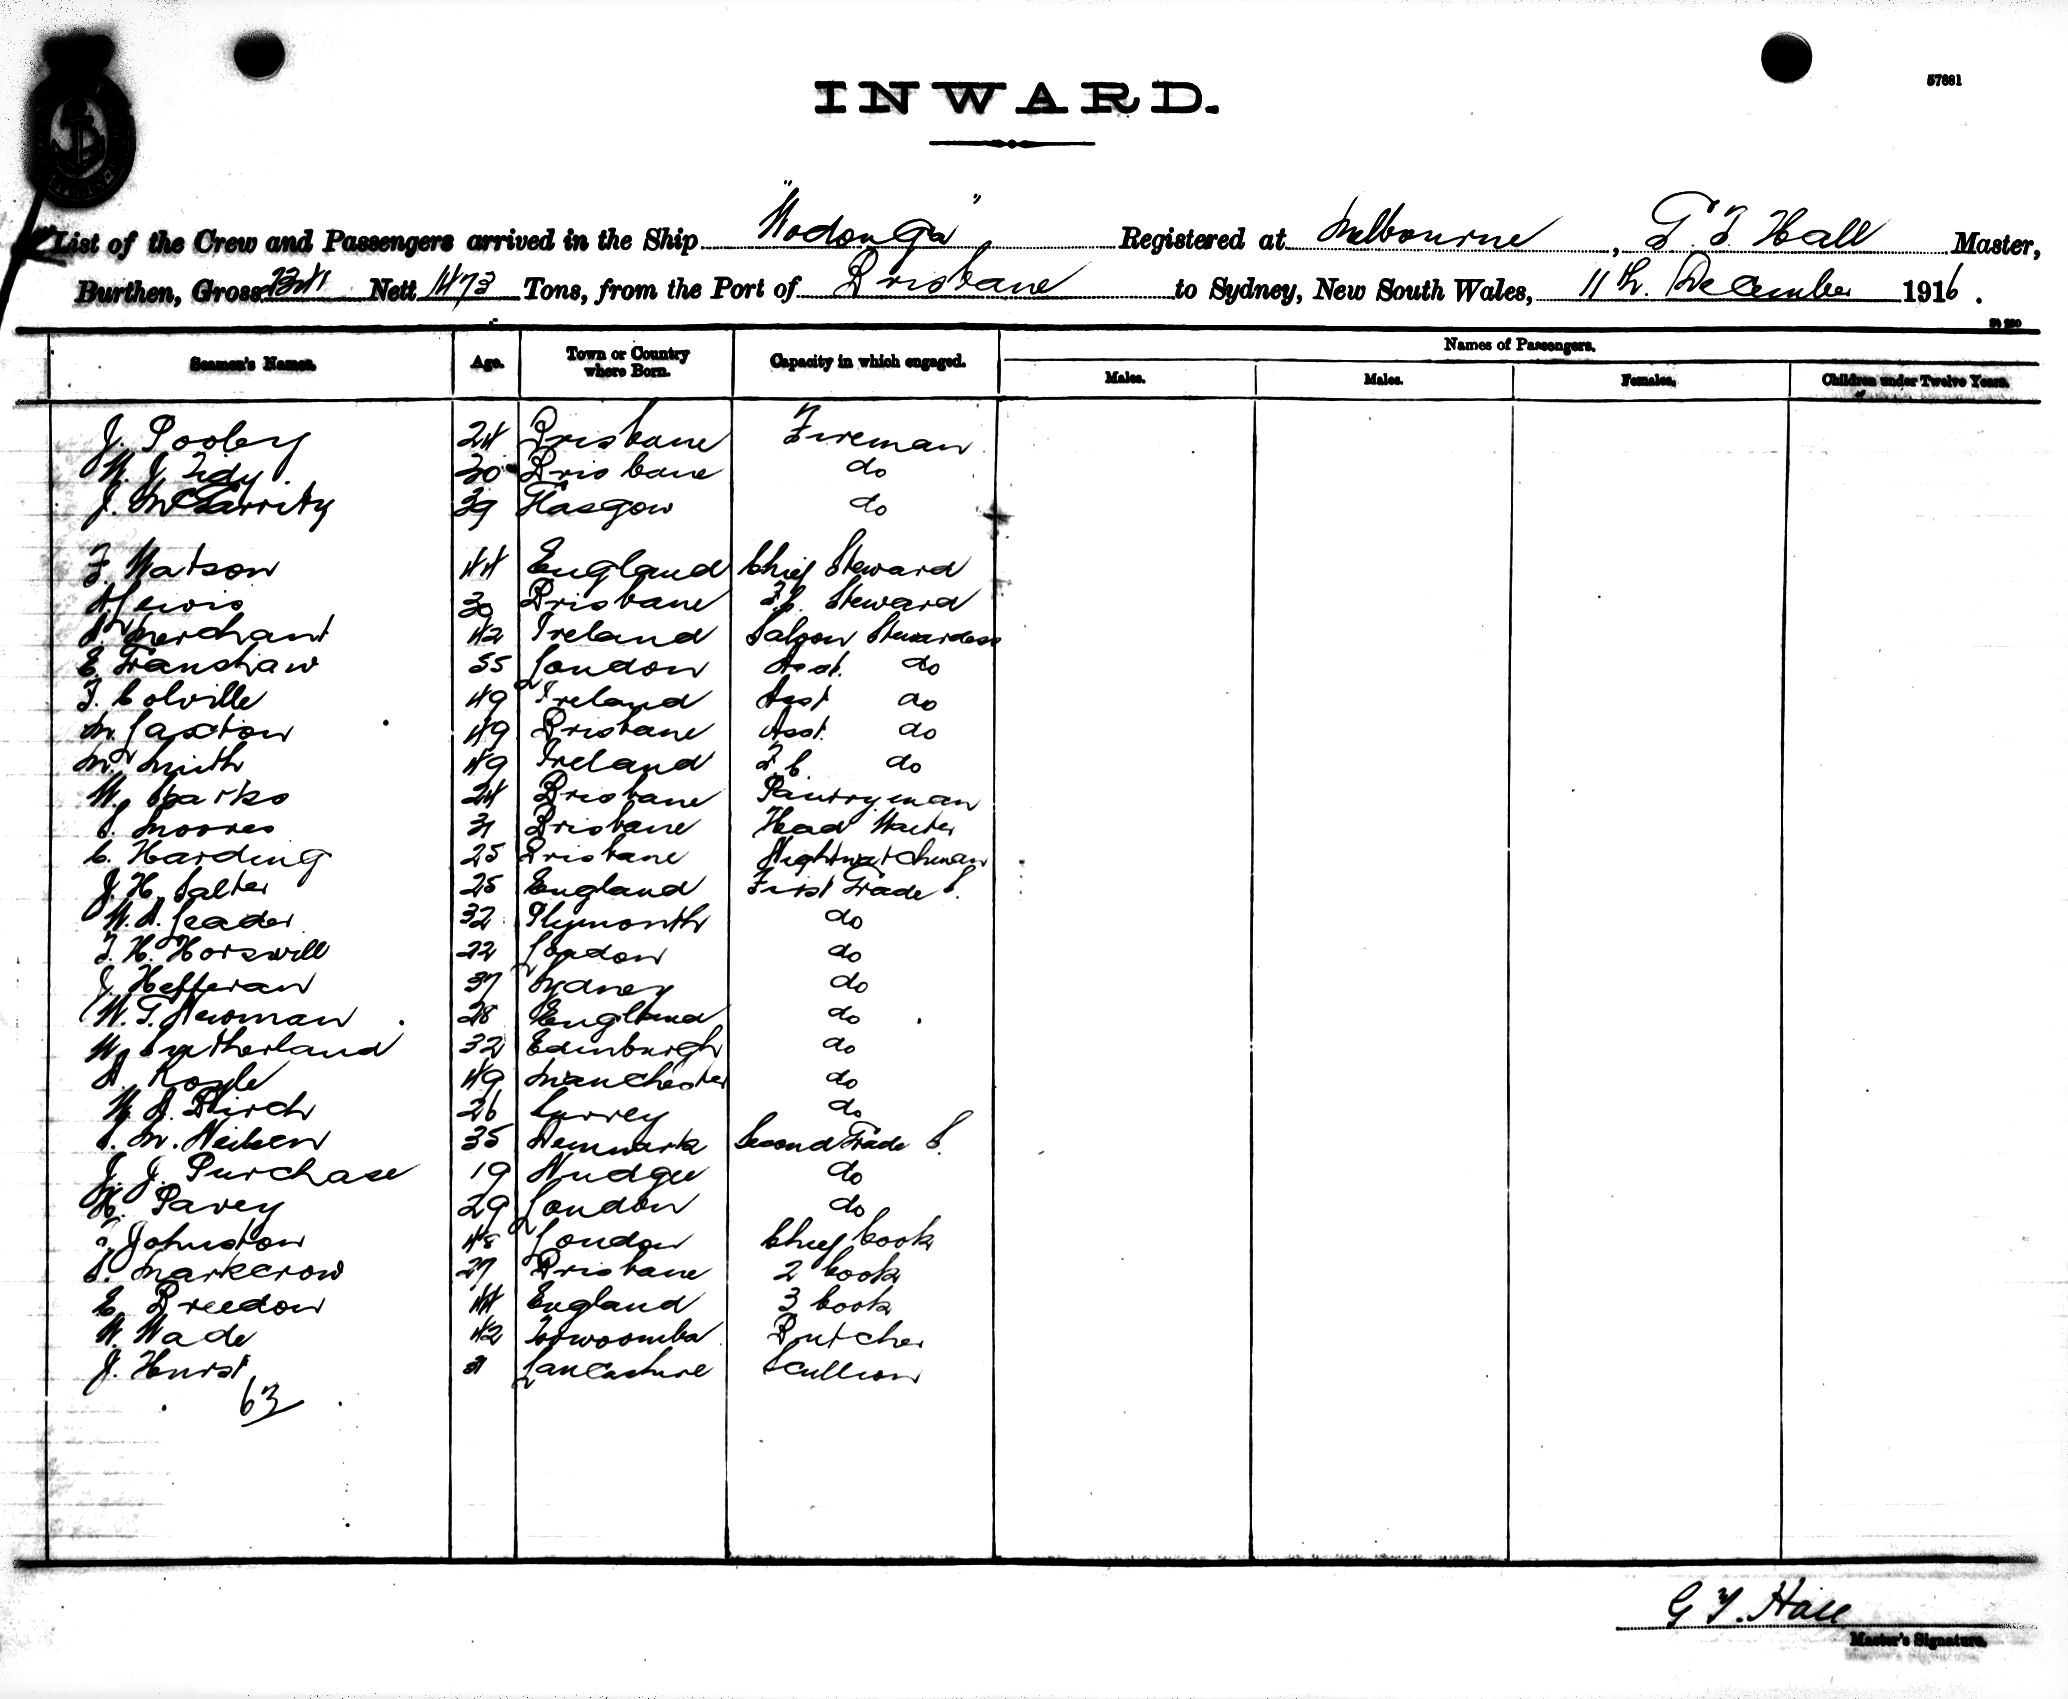 57881
INWARD.
List of the Crew and Passengers arrived in the Ship "Wodonga" Registered at Melbourne, G. F. Hall Master,
Burthen, Gross 2341 Nett 1473 Tons, from the Port of Brisbane to Sydney, New South Wales, 11th. December 1916.
Seamen's Names. Age. Town or Country where Born. Capacity in which engaged. Names of Passengers.
Males. Males. Females. Children under Twelve Years.
J. Pooley 24 Brisbane Fireman
W. J. Tidy 30 Brisbane do
J. McGarrity 39 Glasgow do
F. Watson 44 England Chief Steward
A. Lewis 30 Brisbane F.C. Steward
S. Merchant 42 Ireland Saloon Stewardess
E. Granshaw 55 London Asst. do
F. Colville 49 Ireland Asst do
M. Laxton 49 Brisbane Asst. do
M. Smith 49 Ireland F C. do
W. Sparks 24 Brisbane Pantryman
S. Moores 31 Brisbane Head Waiter
C. Harding 25 Brisbane Nightwatchman
J. H. Salter 25 England First Grade S.
W. A. Leader 32 Plymouth do
F. H. Horswill 22 London do
J. Hefferan 37 Sydney do
W. G. Newman 28 England do
W. Sutherland 32 Edinburgh do
A. Royle 49 Manchester do
W. A. Birch 26 Surrey do
S. M. Neilsen 35 Denmark Second Grade S.
J. J. Purchase 19 Nudgee do
H. Pavey 29 London do
Johnston 48 London Chief Cook
S. Markcrow 27 Brisbane 2 Cook
E. Breedon 44 England 3 Cook
W. Wade 42 Toowoomba Butcher
J. Hurst Lancashire Scullion
63
G F. Hall
Master's Signature.